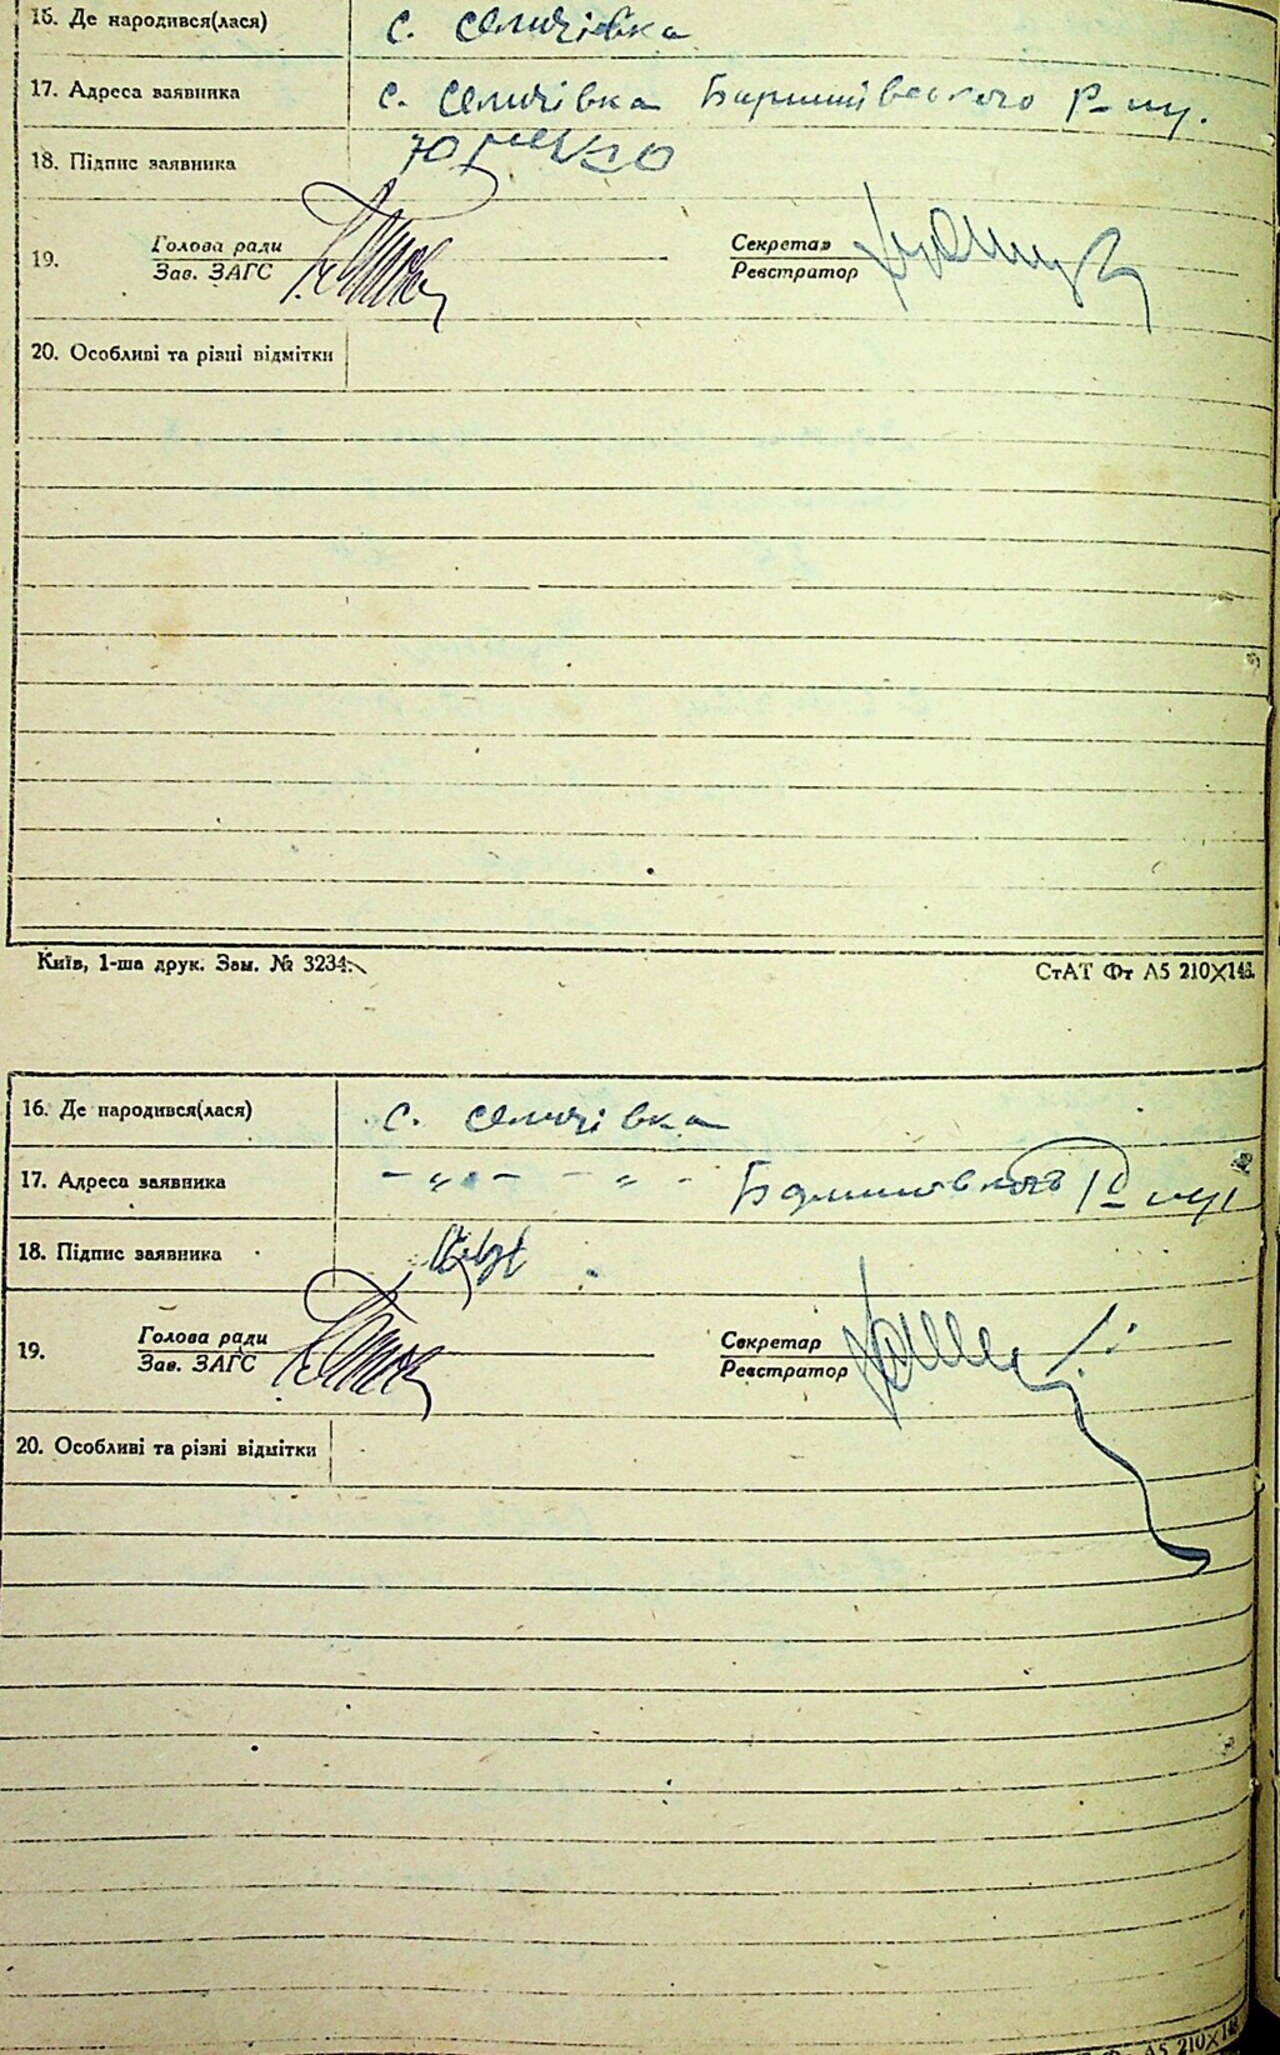 16. Де народився(лася) с. Селичівка
17. Адреса заявника с. Селичівка Баришівського р-ну.
18. Підпис заявника
19. Голова ради Секретар
Зав. ЗАГС Реєстратор
20. Особливі та різні відмітки
Київ, 1-ша друк. Зам. № 3234. СтАТ Фт А5 210×148.
16. Де народився(лася) с. Селичівка
17. Адреса заявника - „ - - „ - Баришівського р-ну
18. Підпис заявника
19. Голова ради Секретар
Зав. ЗАГС Реєстратор
20. Особливі та різні відмітки
А5 210×148